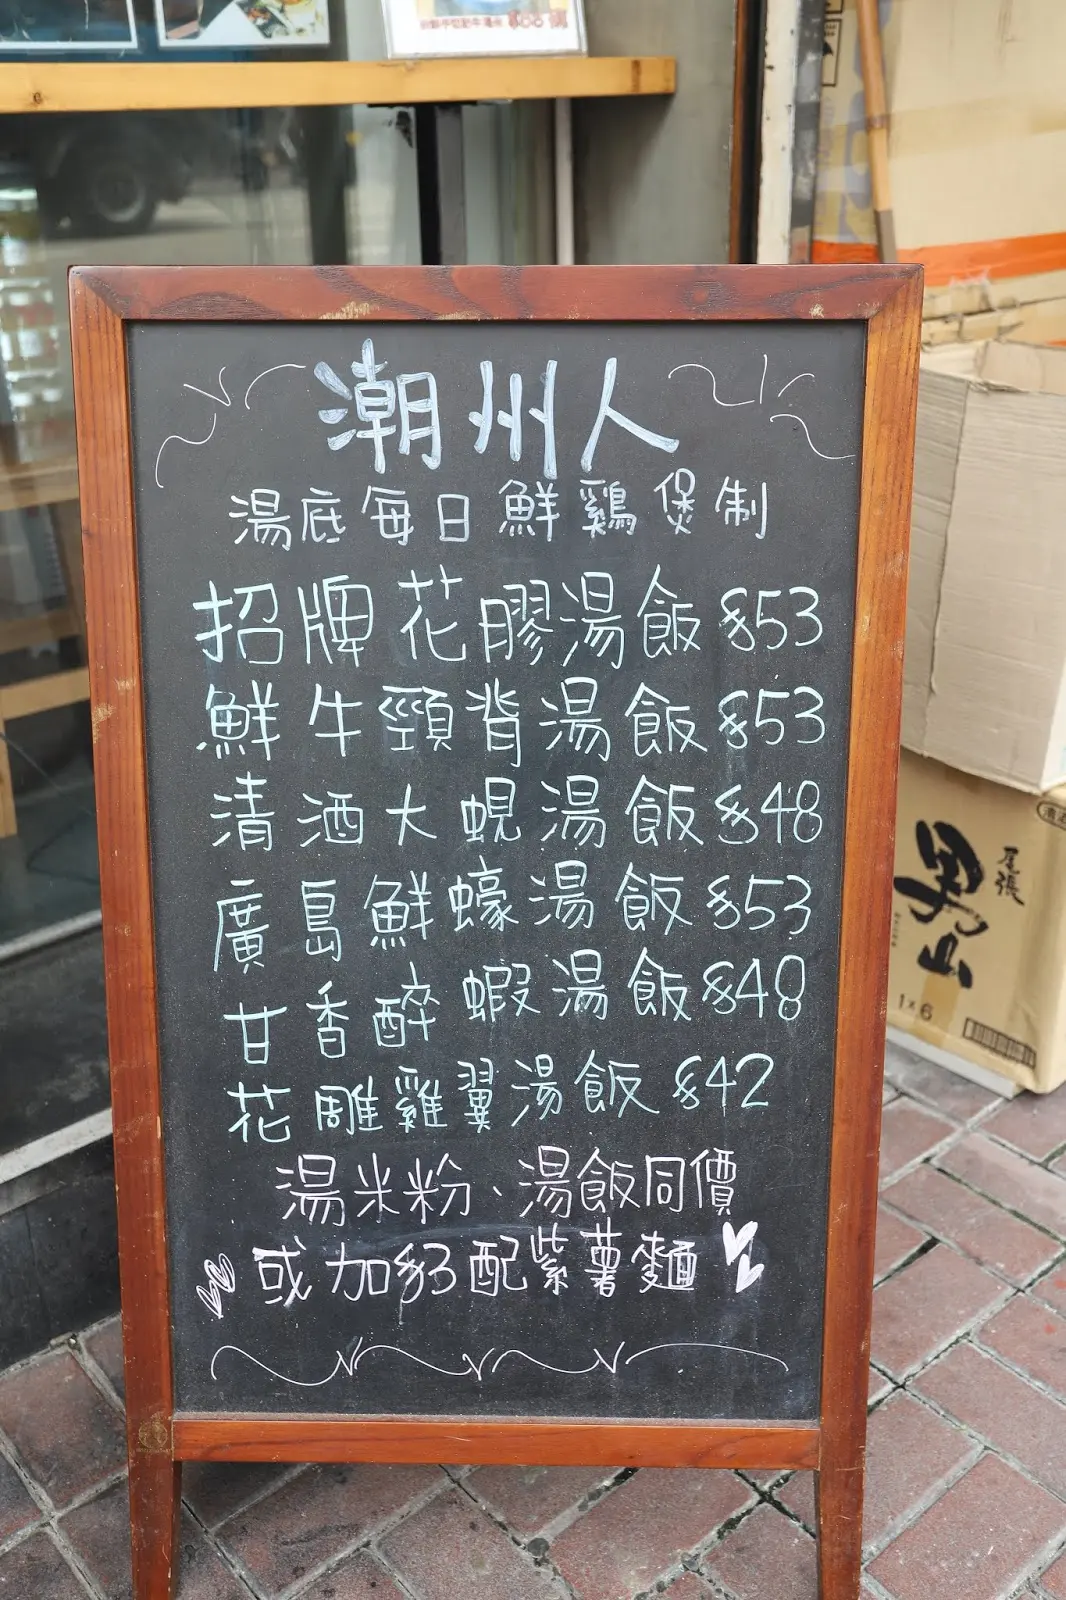 潮州人
湯底每日鮮鷄煲制
招牌花膠湯飯$53
鮮牛頸背湯飯$53
清酒大蜆湯飯$48
廣島鮮蠔湯飯$53
甘香醉蝦湯飯$48
花雕雞翼湯飯$42
湯米粉、湯飯同價
或加$3配紫薯麵
尾張
男山
1×6